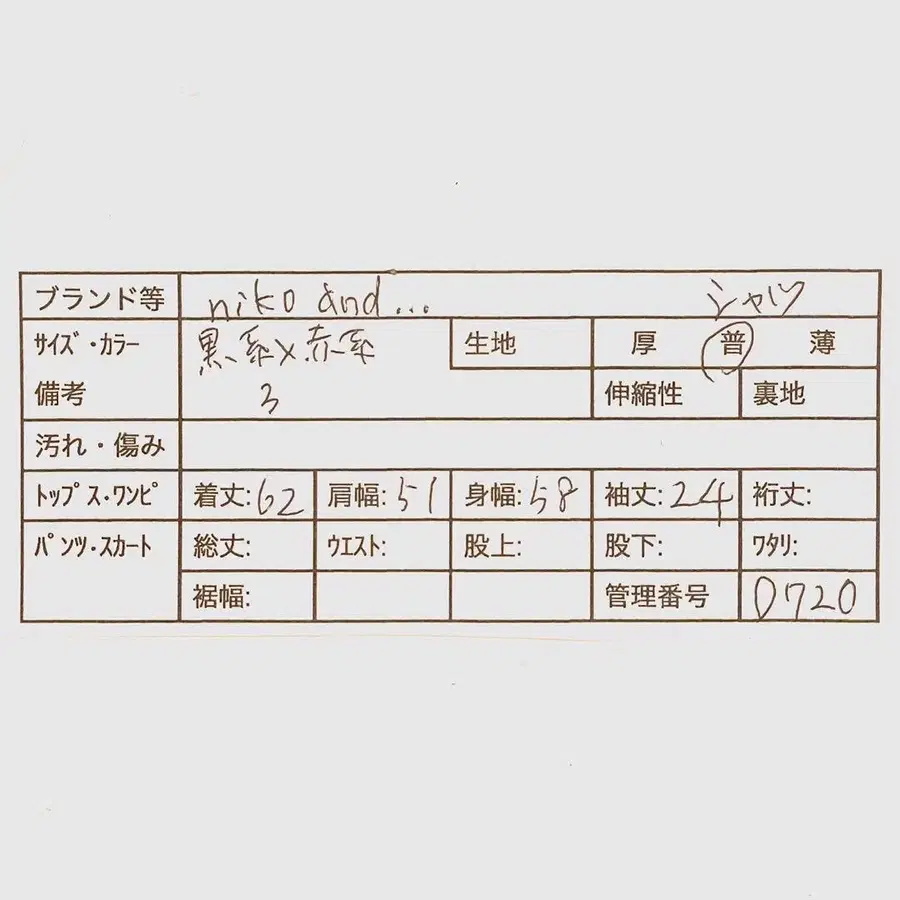 ブランド等 niko and... シャツ
サイズ・カラー 黒系×赤系 生地 厚 普 薄
備考 3 伸縮性 裏地
汚れ・傷み
トップス・ワンピ 着丈:62 肩幅:51 身幅:58 袖丈:24 裄丈:
パンツ・スカート 総丈: ウエスト: 股上: 股下: ワタリ:
裾幅: 管理番号 0720